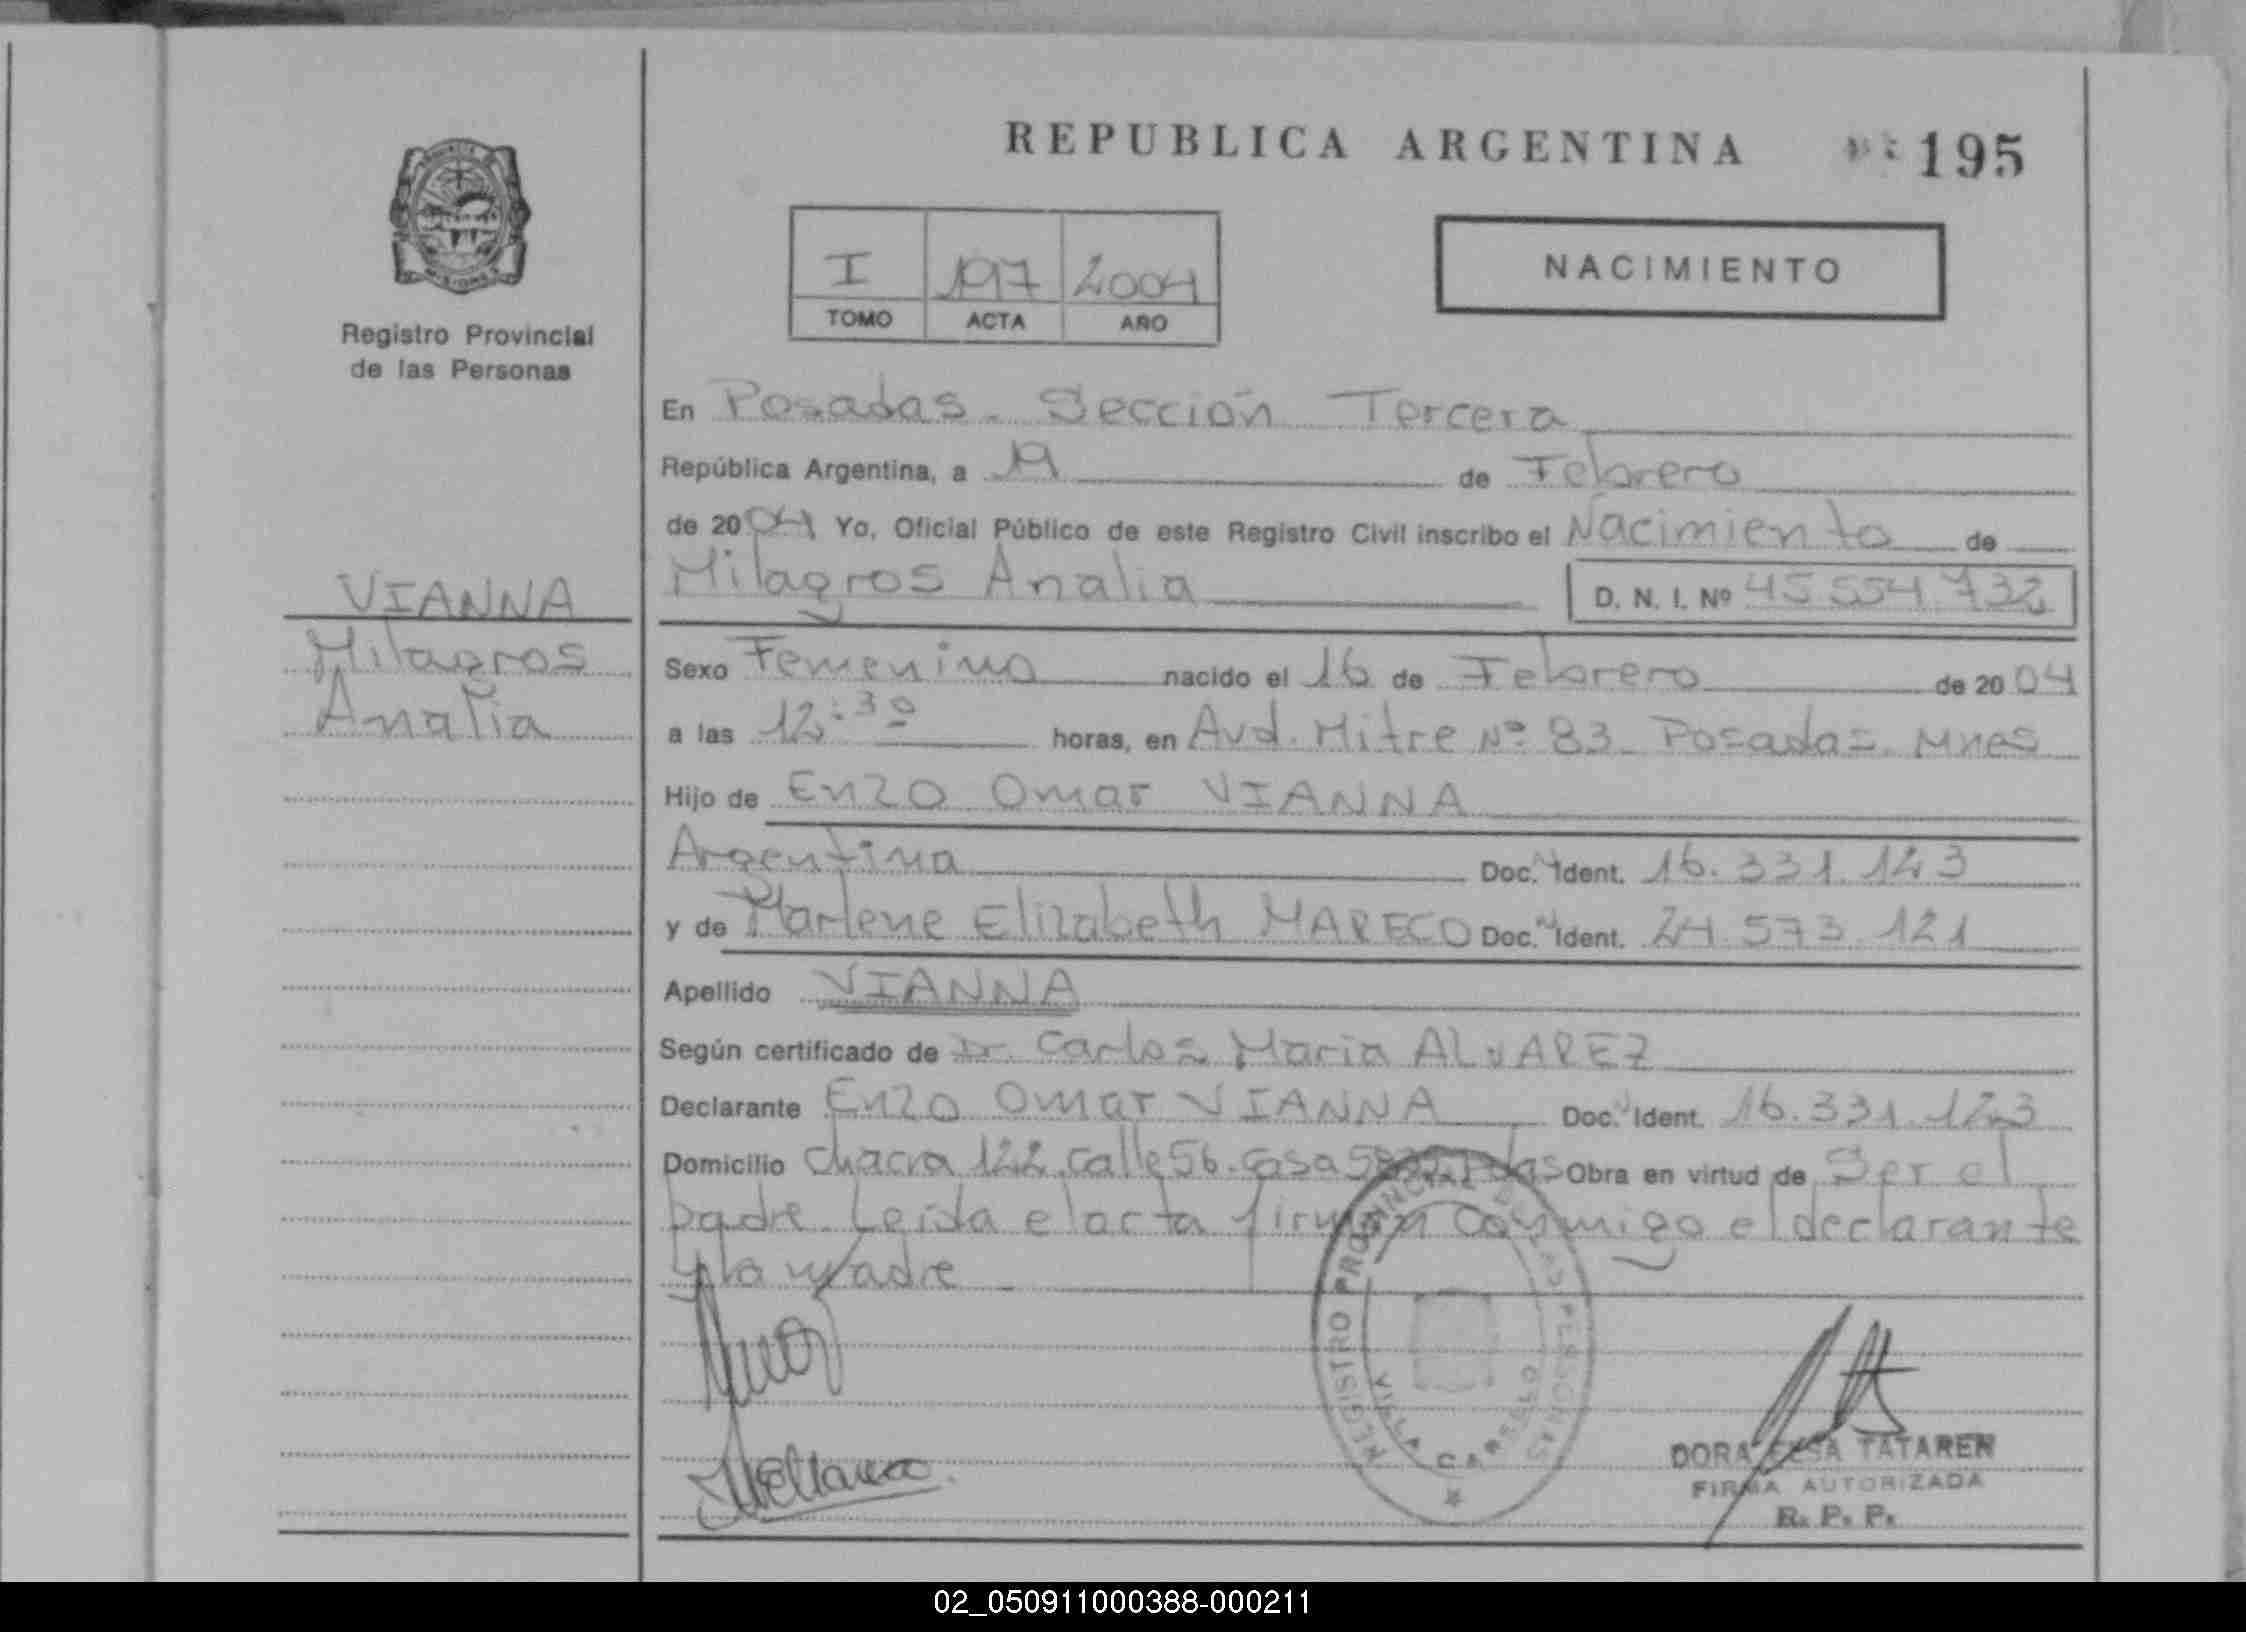 REPUBLICA ARGENTINA 195
I 197 2004
TOMO ACTA AÑO
NACIMIENTO
Registro Provincial
de las Personas
En Posadas - Sección Tercera
República Argentina, a 19 de Febrero
de 2004 Yo, Oficial Público de este Registro Civil inscribo el Nacimiento de
Milagros Analia D. N. I. Nº 45.554.732
VIANNA
Milagros
Analia
Sexo Femenino nacido el 16 de Febrero de 2004
a las 12:30 horas, en Avd. Mitre Nº 83 Posadas Mnes
Hijo de Enzo Omar VIANNA
Argentina Doc. Ident. 16.331.123
y de Marlene Elizabeth MARECO Doc. Ident. 24.573.121
Apellido VIANNA
Según certificado de Dr. Carlos Maria ALVAREZ
Declarante Enzo Omar VIANNA Doc. Ident. 16.331.123
Domicilio Chacra 122 Calle 56. Casa Pdas Obra en virtud de Ser el
padre. Leída el acta firman conmigo el declarante
y la madre
REGISTRO PROVINCIAL DE LAS PERSONAS
VILLA CABELLO
DORA ELSA TATAREN
FIRMA AUTORIZADA
R. P. P.
02_050911000388-000211